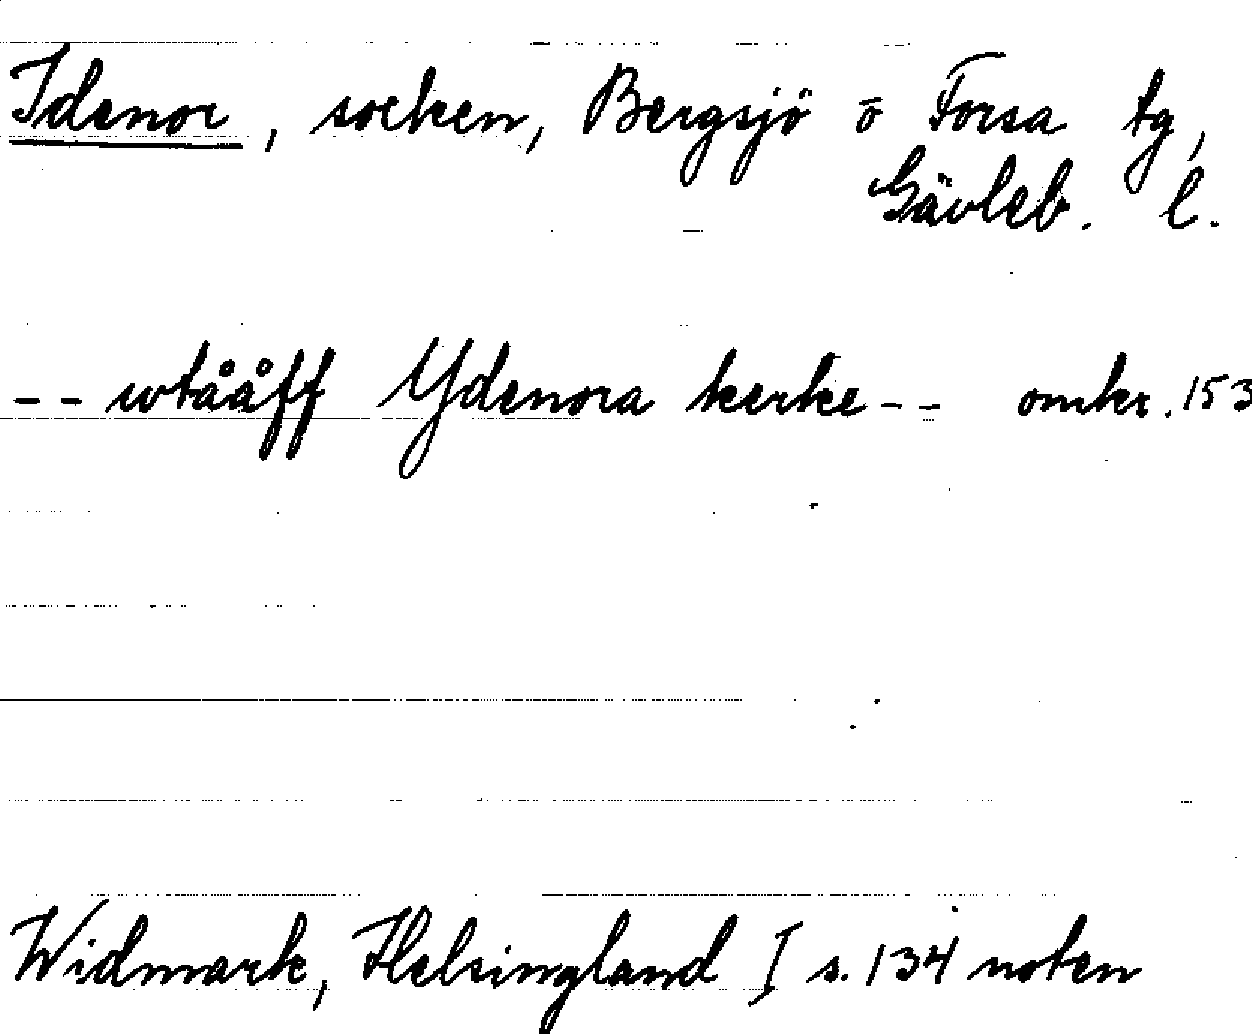 Idenor, socken, Bergsjö o Forsa tg,
Gävleb. l.
-- wtååff Ydenora kerke -- omkr. 153
Widmark, Helsingland I s. 134 noten